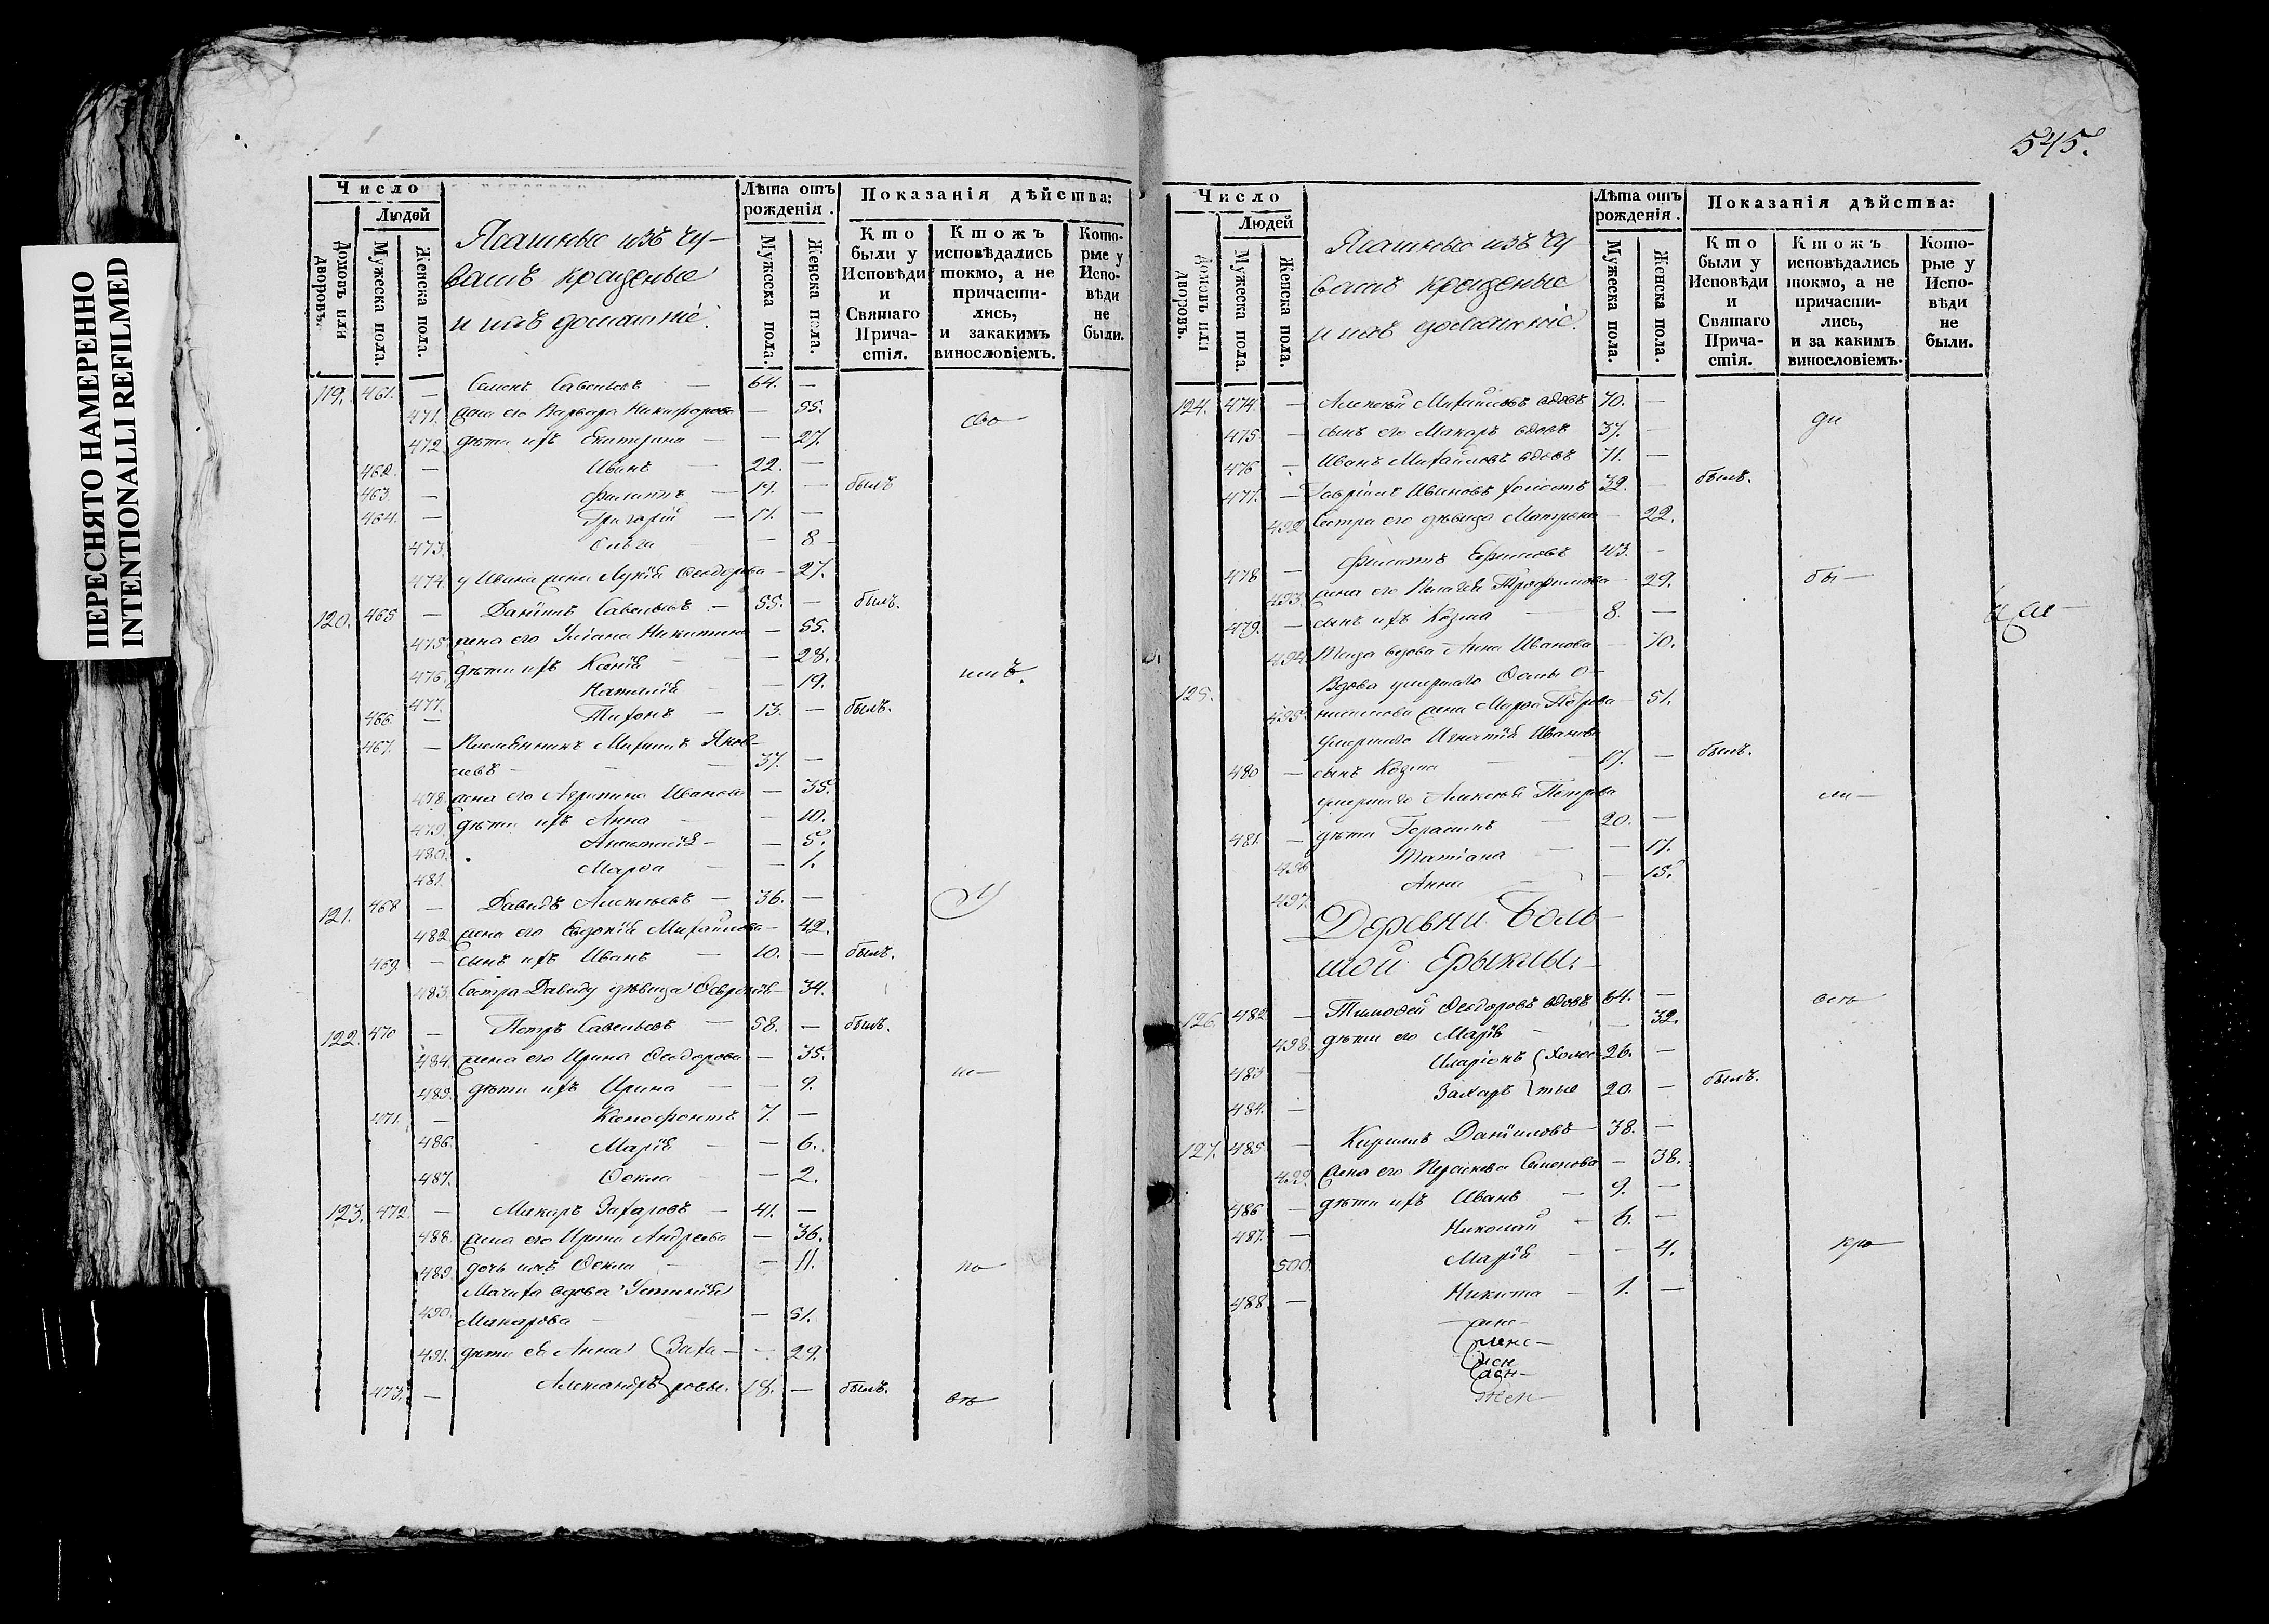 ПЕРЕСНЯТО НАМЕРЕННО
INTENTIONALLI REFILMED
Число
Людей
Домовъ или дворовъ.
Мужеска пола.
Женска пола.
Ясашные изъ чу-
вашъ крещеные
и ихъ домашніе.
Лѣта отъ рожденія.
Мужеска пола.
Женска пола.
Показанія дѣйства:
Кто были у Исповѣди и Святаго Прича-стія.
Ктожъ исповѣдались токмо, а не причасти-лись, и закакимъ винословіемъ.
Кото-рые у Испо-вѣди не были.
119. 461. — Семенъ Савельевъ — 64. —
471. жена его Варвара Никифорова — 55.
472. дѣти ихъ Екатерина — — 27.
462. — Иванъ — 22. —
463. — Филиппъ — 17. — былъ
464. — Григорій — 11. —
473. Ольга — 8
474. у Ивана жена Лукія Ѳеодорова — 27.
120. 465 — Даніилъ Савельевъ — 55. — былъ.
475. жена его Уліана Никитина — 55.
476. дѣти ихъ Ксенія — — 28.
477. Наталія — — 19.
466 — Тихонъ — 13. — былъ.
467. — Племянникъ Михаилъ Яков-
левъ — — — 37. —
478. жена его Агрипина Иванова — 35.
479. дѣти ихъ Анна — — 10.
480. Анастасія — — 5.
481. Марѳа — — 1.
121. 468 — Давидъ Алексѣевъ — 36. —
482. жена его Евдокія Михайлова — 42.
469. — сынъ ихъ Иванъ — 10. — былъ.
483. Сестра Давиду дѣвица — 34.
122. 470 — Петръ Савельевъ — 58. — былъ.
484. жена его Ирина Ѳеодорова — 35.
485. дѣти ихъ Ирина — — 9.
471. — Ксенофонтъ 7. —
486. Марія — — 6.
487. Ѳекла — — 2.
123. 472. — Макаръ Захаровъ — 41. —
488. жена его Ирина Андреева — 36.
489. дочь ихъ Ѳекла — — 11. по—
Мачиха вдова Устинія
490. Макарова — — 51.
491. дѣти ея Анна Заха— — 29.
473. — Александръ ровы. 18. — былъ.
545.
Число
Людей
Домовъ или дворовъ.
Мужеска пола
Женска пола.
Ясашные изъ чу-
вашъ крещеные
и ихъ домашніе.
Лѣта отъ рожденія.
Мужеска пола.
Женска пола.
Показанія дѣйства:
Кто были у Исповѣди и Святаго Прича-стія.
Ктожъ исповѣдались токмо, а не причасти-лись, и за какимъ винословіемъ.
Кото-рые у Испо-вѣди не были.
124. 474. — Алексѣй Михайловъ вдовъ 70. —
475. — сынъ его Макаръ вдовъ 37. —
476 — Иванъ Михайловъ вдовъ 71. —
477. — Гавріилъ Ивановъ холостъ 32. — былъ.
492 Сестра его дѣвица Матрена — 22.
478 — Филиппъ Ефимовъ 43. —
493. жена его Пелагея Трофимова — 29. бы—
479. — сынъ ихъ Козма — 8. —
494. Теща вдова Анна Иванова — 70.
125. Вдова умершаго
495. жена Марѳа Петрова — 51.
умершаго Игнатія Иванова
480 — сынъ Козма — 17. — былъ.
умершаго Алексѣя Петрова
481. — дѣти Герасимъ — 20. —
496 Татіана — — 17.
497. Анна — — 15.
Деревни Боль—
шой Ерыклы.—
126. 482 — Тимоѳей Ѳеодоровъ вдовъ 64. —
498. дѣти его Марія — — 32.
483 — Иларіонъ холос 26. —
484. — Захаръ тые 20. — былъ.
127. 485 — Кирилъ Даніиловъ — 38. —
499. жена его Семенова — 38.
486 — дѣти ихъ Иванъ — 9. —
487. — Николай — 6. —
500. Марія — — 4.
488 — Никита — 1. —